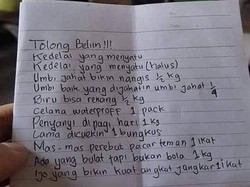 Tolong Beliin!!!
Kedelai yang menyatu
Kedelai yang menyatu (halus)
Umbi jahat bikin nangis ½ kg
Umbi baik yang dijahatin umbi jahat ¼
Biru bisa renang ½ kg
Celana waterproff 1 pack
Penyanyi di pagi hari 1 kg
Lama dicuekin 1 bungkus
Mas-mas perebut pacar teman 1 ikat
Ada yang bulat tapi bukan bola 1 kg
Ijo yang bikin kuat angkat jangkar 1 ikat